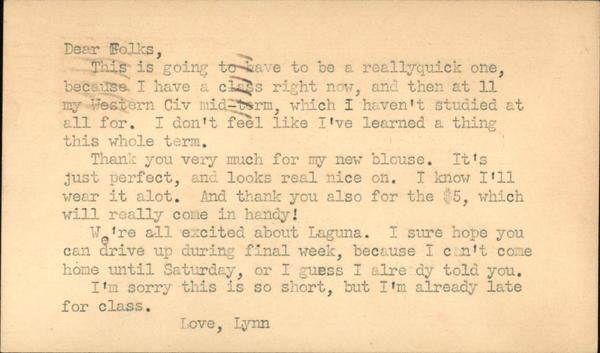 Dear Folks,
This is going to have to be a reallyquick one,
because I have a class right now, and then at 11
my Western Civ mid-term, which I haven't studied at
all for.  I don't feel like I've learned a thing
this whole term.
Thank you very much for my new blouse.  It's
just perfect, and looks real nice on.  I know I'll
wear it alot.  And thank you also for the $5, which
will really come in handy!
We're all excited about Laguna.  I sure hope you
can drive up during final week, because I can't come
home until Saturday, or I guess I already told you.
I'm sorry this is so short, but I'm already late
for class.
Love, Lynn